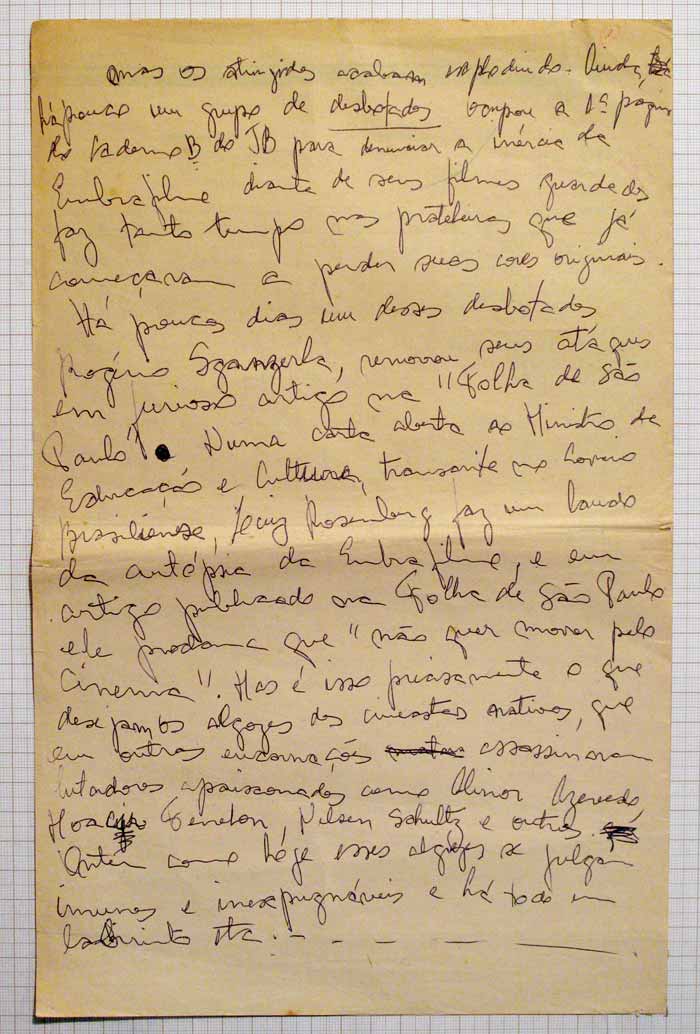 mas os atingidos acabam explodindo. Ainda
há pouco um grupo de desbotados ocupou a 1ª página
do Caderno B do JB para denunciar a inércia da
Embrafilme diante de seus filmes guardados
faz tanto tempo nas prateleiras que já
começaram a perder suas cores originais.
Há poucos dias um desses desbotados
Rogério Sganzerla, renovou seus ataques
em furioso artigo na "Folha de São
Paulo". Numa carta aberta ao Ministro da
Educação e Cultura, no Correio
Brasiliense, Luiz Rosemberg faz um laudo
da autópsia da Embrafilme, e em
artigo publicado na Folha de São Paulo
ele proclama que "não quer morrer pelo
Cinema". Mas é isso precisamente o que
desejam os algozes dos cineastas nativos, que
em outras encarnações assassinaram
lutadores apaixonados como Alinor Azevedo,
Moacyr Fenelon, Nilson Schultz e outros.
Ontem como hoje esses algozes se julgam
imunes e inexpugnáveis e há todo um
labirinto